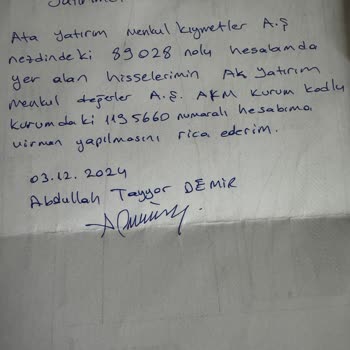 Ata Yatırım Menkul Kıymetler A.Ş
nezdindeki 89028 nolu hesabımda
yer alan hisselerimin Ak Yatırım
Menkul değerler A.Ş. AKM kurum kodlu
kurumdaki 1195660 numaralı hesabıma
virman yapılmasını rica ederim.
03.12.2024
Abdullah Tayyar DEMİR